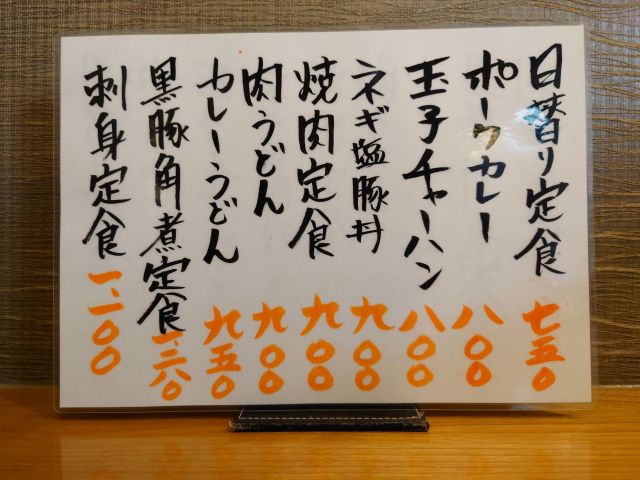 日替り定食 七五〇
ポークカレー 八〇〇
玉子チャーハン 八〇〇
ネギ塩豚丼 九〇〇
焼肉定食 九〇〇
肉うどん 九〇〇
カレーうどん 九五〇
黒豚角煮定食 一、三六〇
刺身定食 一、一〇〇